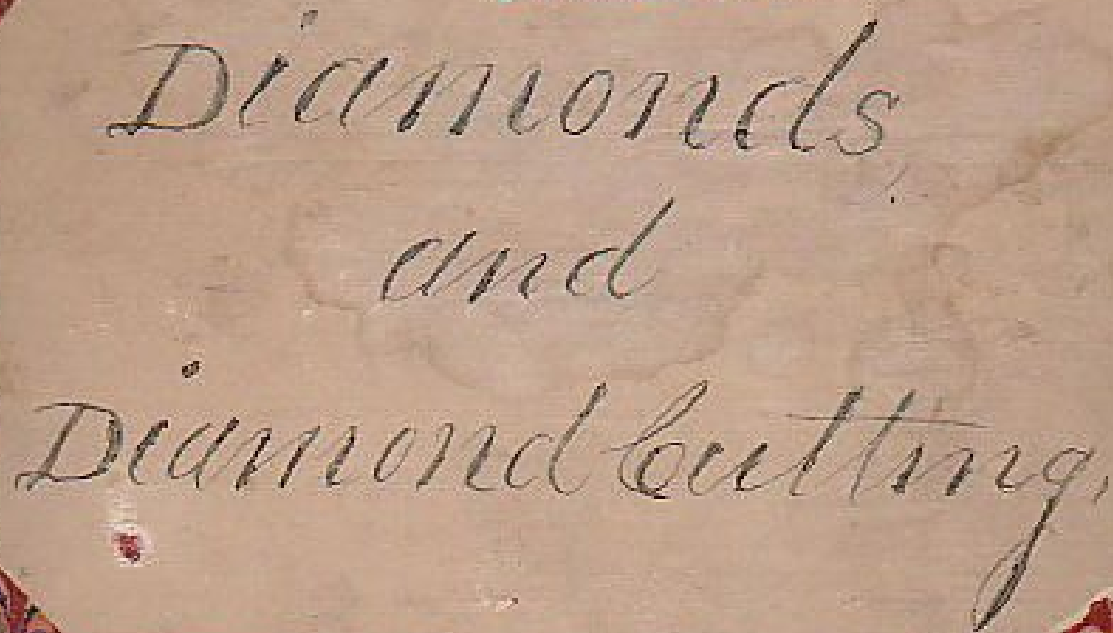 Diamonds
and
Diamond Cutting.